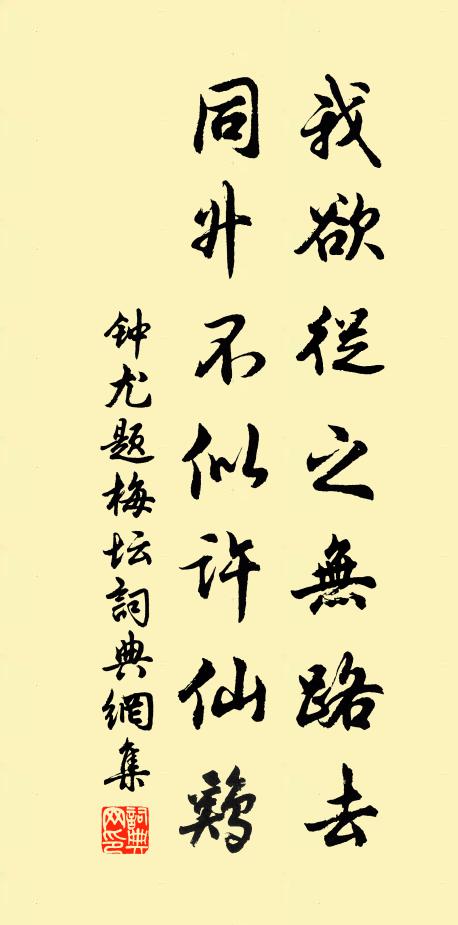 我欲從之無路去
同升不似許仙鷄
钟尤题梅坛詞典網集
詞典网印